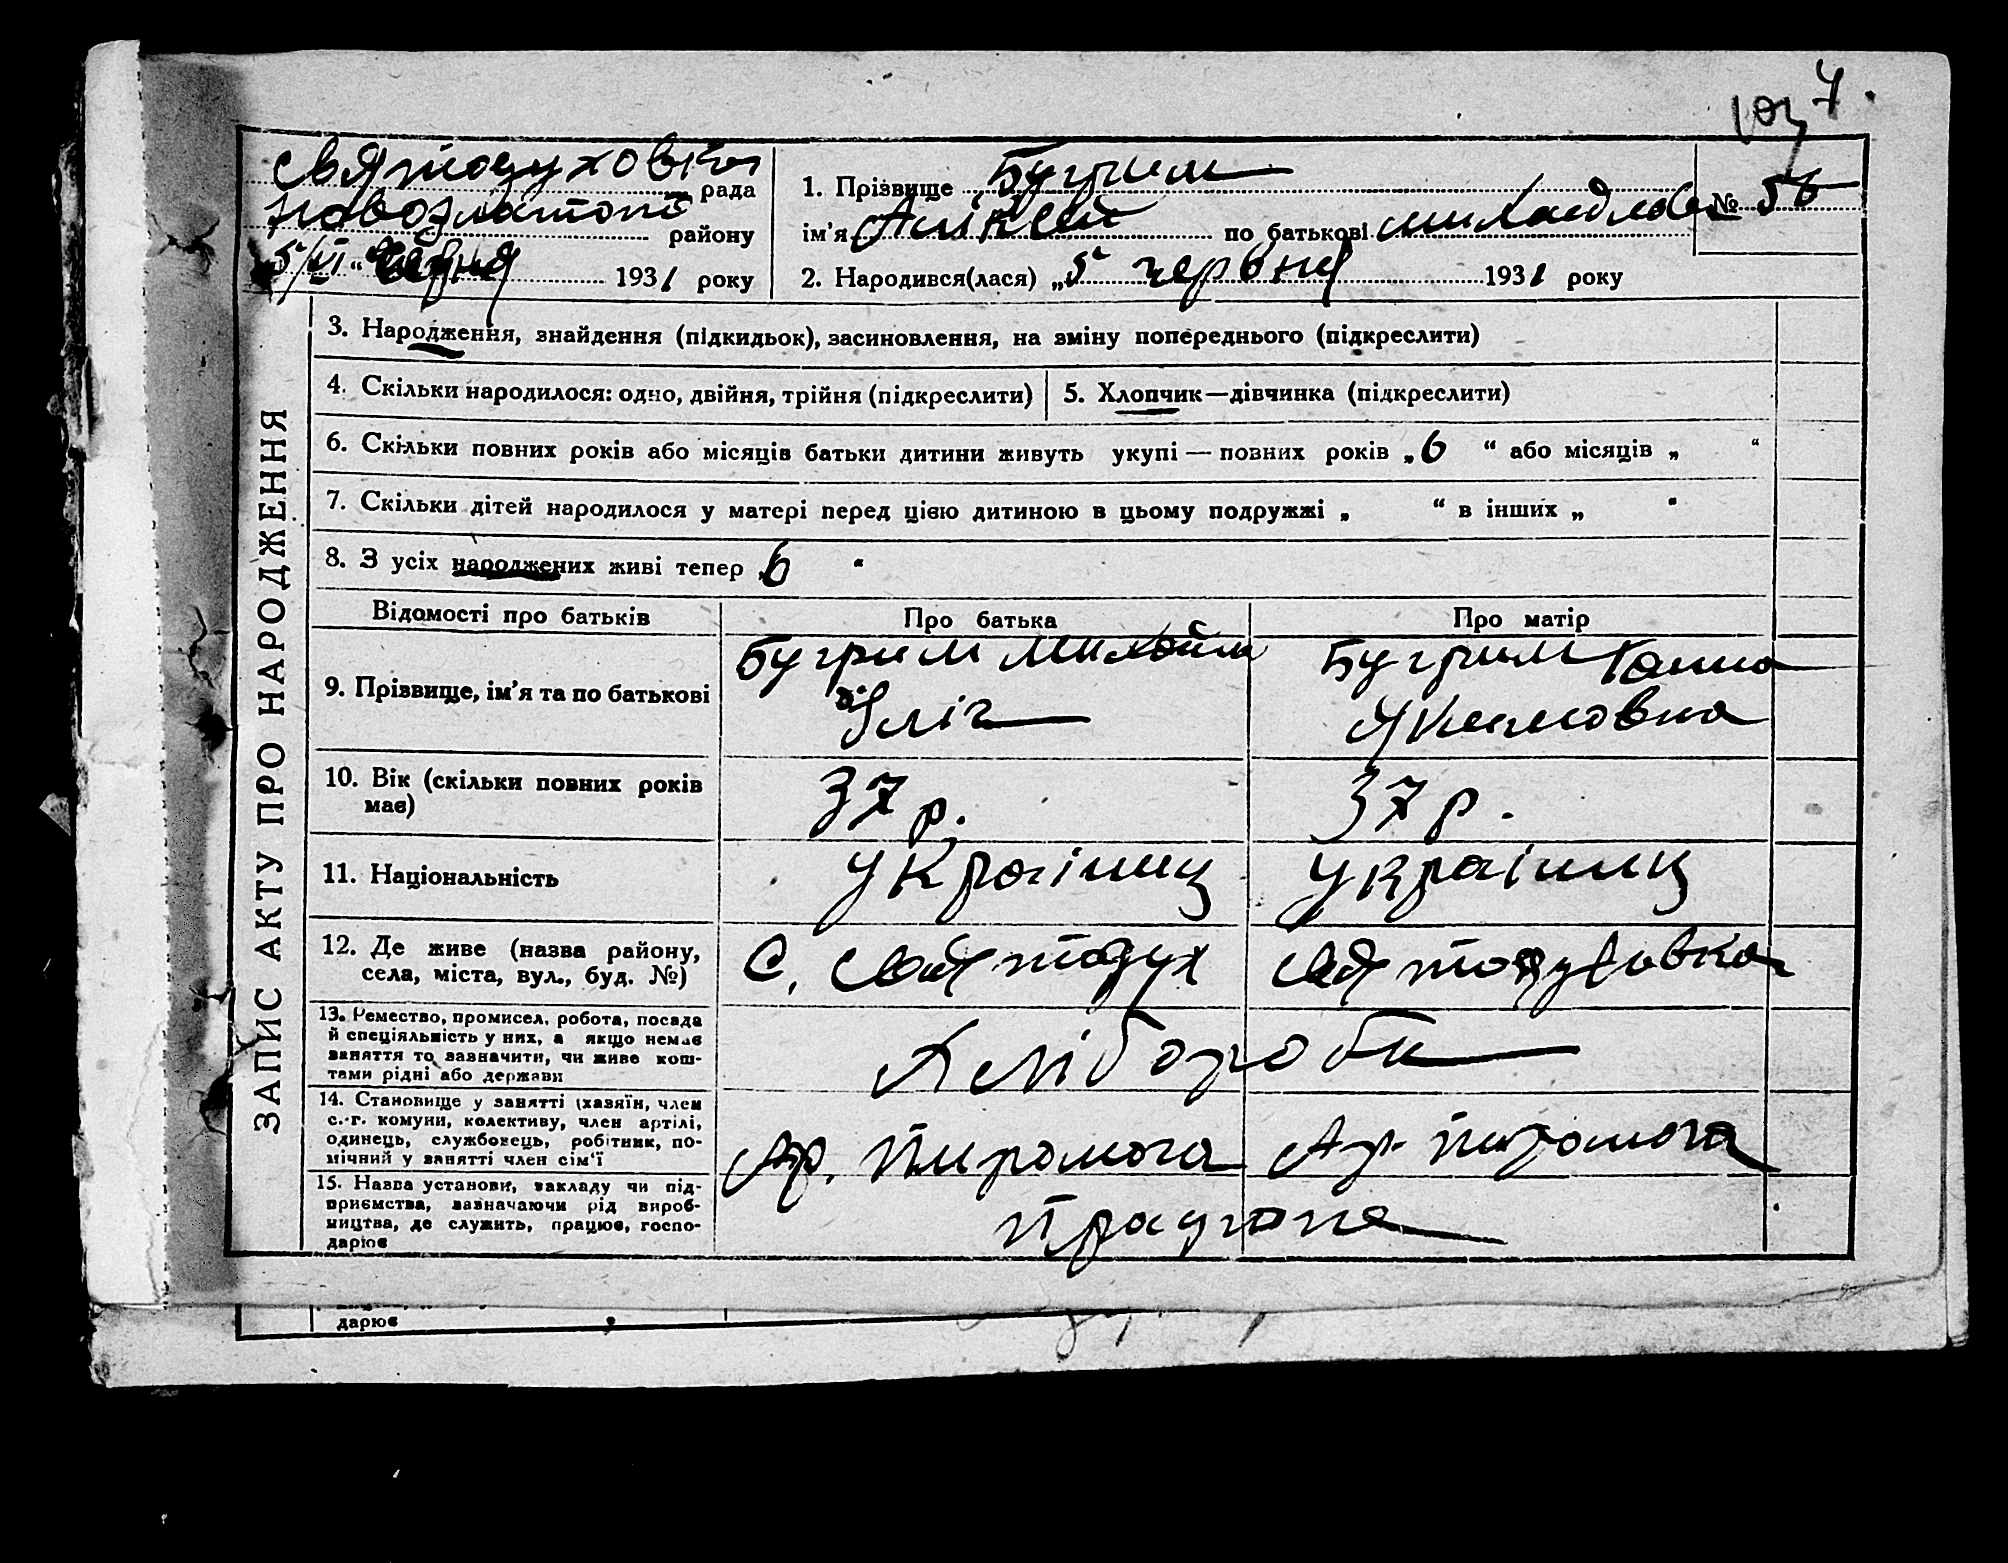 7.
Святодуховка рада
новозлатопо району
5/VI „червня 1931 року
1. Прізвище Бугрим № 56
ім'я Алікей по батькові михайлов
2. Народився(лася) „5 червня 1931 року
ЗАПИС АКТУ ПРО НАРОДЖЕННЯ
3. Народження, знайдення (підкидьок), засиновлення, на зміну попереднього (підкреслити)
4. Скільки народилося: одно, двійня, трійня (підкреслити)
5. Хлопчик—дівчинка (підкреслити)
6. Скільки повних років або місяців батьки дитини живуть укупі — повних років „6 “ або місяців „ “
7. Скільки дітей народилося у матері перед цією дитиною в цьому подружжі „ “ в інших „ “
8. З усіх народжених живі тепер 6 “
Відомості про батьків Про батька Про матір
9. Прізвище, ім'я та по батькові
Бугрим Михайло
Ілліч
Бугрим Ганна
Якимовна
10. Вік (скільки повних років
має)
37 р. 37 р.
11. Національність Українц Українц
12. Де живе (назва району,
села, міста, вул., буд. №)
С. Святодух Святодуховка
13. Ремество, промисел, робота, посада
й спеціяльність у них, а якщо немає
заняття то зазначити, чи живе кош-
тами рідні або держави
Хлібороби
14. Становище у занятті (хазяїн, член
с.-г. комуни, колективу, член артілі,
одинець, службовець, робітник, по-
мічний у занятті член сім'ї
Ар. Пиромога Ар. Пиромога
15. Назва установи, закладу чи під-
приємства, зазначаючи рід вироб-
ництва, де служить, працює, госпо-
дарює
дарює